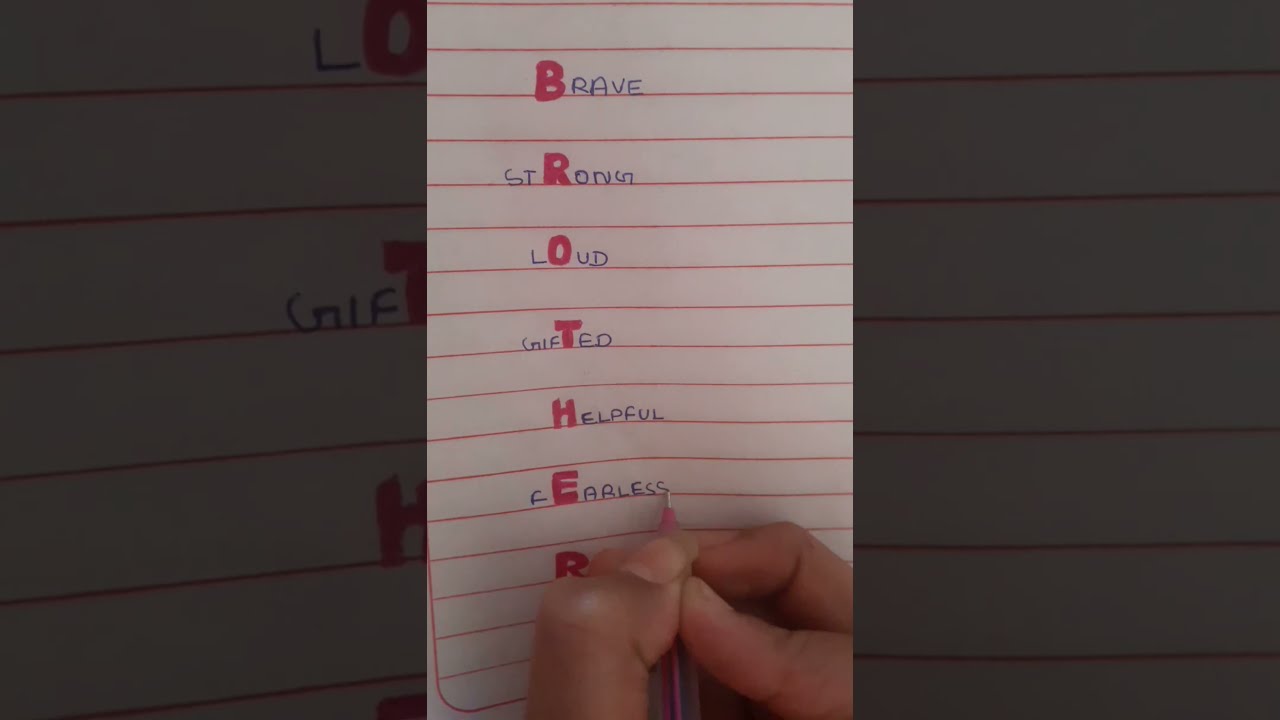 BRAVE
STRONG
LOUD
GIFTED
HELPFUL
FEARLESS
R